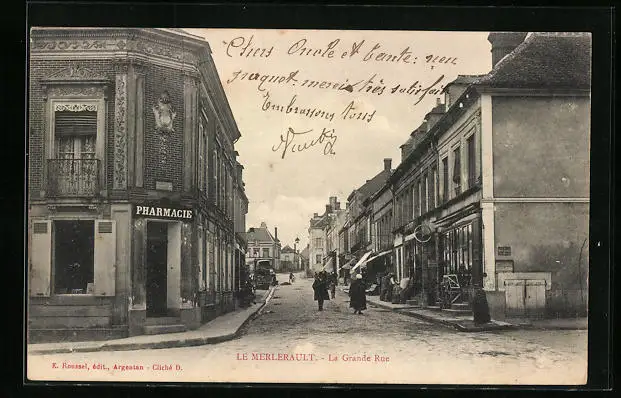 Chers Oncle et Tante: reçu
paquet. merci très satisfait
Embrassons tous
PHARMACIE
LE MERLERAULT. - La Grande Rue
E. Roussel, édit., Argentan - Cliché D.